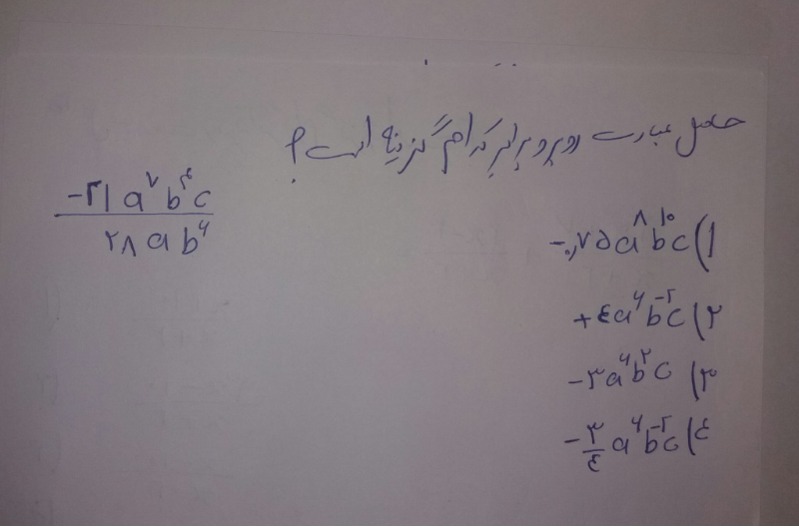 حاصل عبارت روبرو برابر کدام گزینه است؟
-۲۱a⁷b⁴c
۲۸ab⁶
۱) -۰٫۷۵a⁸b¹⁰c
۲) +٤a⁶b⁻²c
۳) -۳a⁶b²c
٤) -۳/٤a⁶b⁻²c